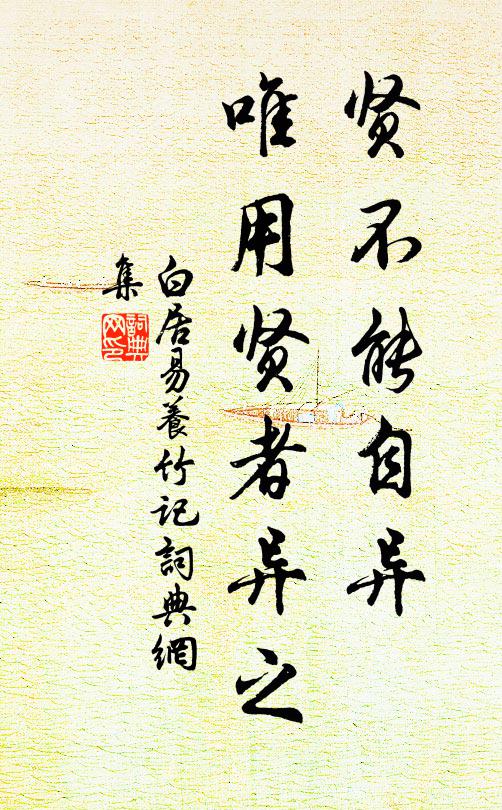 贤不能自异
唯用贤者异之
白居易養竹记詞典網
集
詞典网印